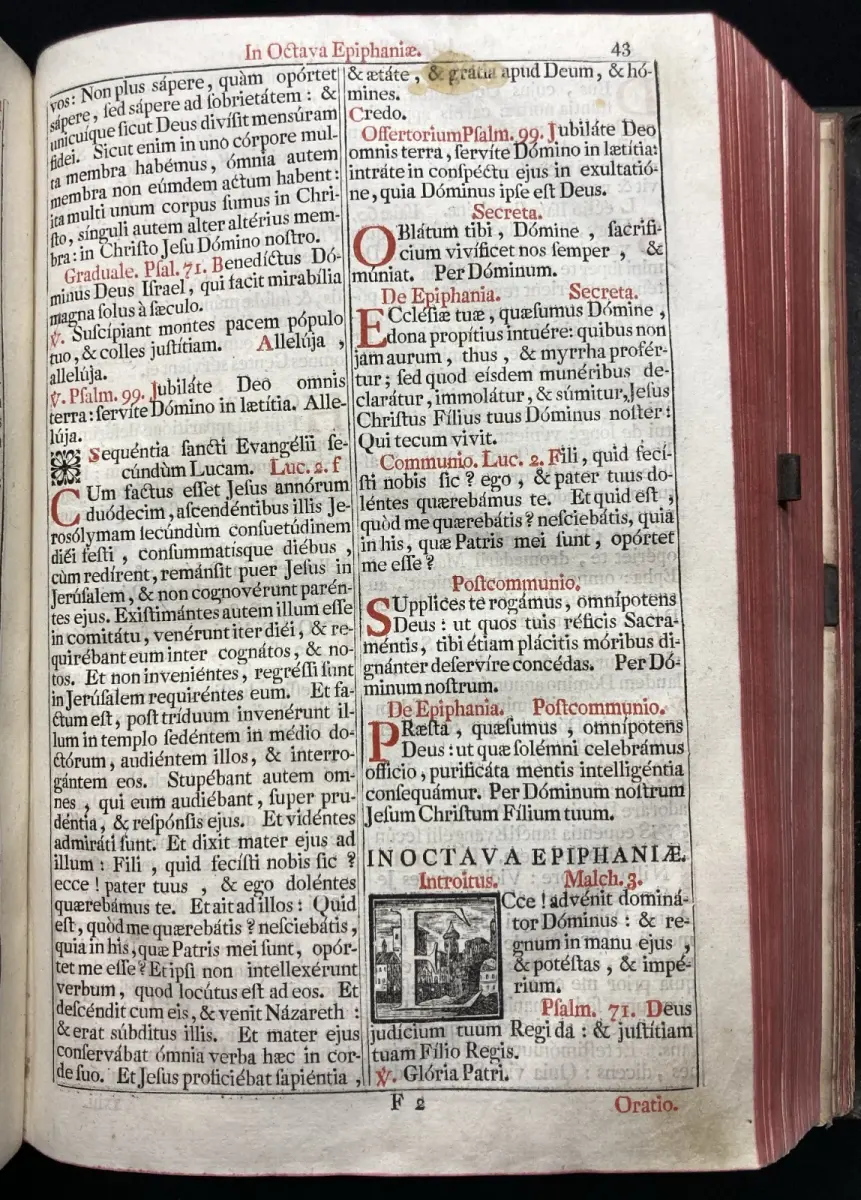 In Octava Epiphaniæ. 43
vos: Non plus sápere, quàm opórtet
sápere, ſed sápere ad ſobrietátem: &
unicuíque ſicut Deus divíſit menſúram
fidei. Sicut enim in uno córpore mul-
ta membra habémus, ómnia autem
membra non eúmdem actum habent:
ita multi unum corpus ſumus in Chri-
ſto, ſínguli autem alter altérius mem-
bra: in Chriſto Jeſu Dómino noſtro.
Graduale. Pſal. 71. Benedíctus Dó-
minus Deus Iſrael, qui facit mirabília
magna ſolus à ſæculo.
℣. Suſcípiant montes pacem pópulo
tuo, & colles juſtítiam. Allelúja,
allelúja.
℣. Pſalm. 99. Jubiláte Deo omnis
terra: ſervíte Dómino in lætítia. Alle-
lúja.
Sequéntia ſancti Evangélii ſe-
cúndùm Lucam. Luc. 2. f
CUm factus eſſet Jeſus annórum
duódecim, aſcendéntibus illis Je-
roſólymam ſecúndùm conſuetúdinem
diéi feſti, conſummatíſque diébus,
cùm redírent, remánſit puer Jeſus in
Jerúſalem, & non cognovérunt parén-
tes ejus. Exiſtimántes autem illum eſſe
in comitátu, venérunt iter diéi, & re-
quirébant eum inter cognátos, & no-
tos. Et non inveniéntes, regréſſi ſunt
in Jerúſalem requiréntes eum. Et fa-
ctum eſt, poſt tríduum invenérunt il-
lum in templo ſedéntem in médio do-
ctórum, audiéntem illos, & interro-
gántem eos. Stupébant autem om-
nes, qui eum audiébant, ſuper pru-
déntia, & reſpónſis ejus. Et vidéntes
admiráti ſunt. Et dixit mater ejus ad
illum: Fili, quid fecíſti nobis ſic?
ecce! pater tuus, & ego doléntes
quærebámus te. Et ait ad illos: Quid
eſt, quòd me quærebátis? neſciebátis,
quia in his, quæ Patris mei ſunt, opór-
tet me eſſe? Et ipſi non intellexérunt
verbum, quod locútus eſt ad eos. Et
deſcéndit cum eis, & venit Názareth:
& erat súbditus illis. Et mater ejus
conſervábat ómnia verba hæc in cor-
de ſuo. Et Jeſus proficiébat ſapiéntia,
& ætáte, & grátia apud Deum, & hó-
mines.
Credo.
Offertorium Pſalm. 99. Jubiláte Deo
omnis terra, ſervíte Dómino in lætítia:
intráte in conſpéctu ejus in exultatió-
ne, quia Dóminus ipſe eſt Deus.
Secreta.
OBlátum tibi, Dómine, ſacrifí-
cium vivíficet nos ſemper, &
múniat. Per Dóminum.
De Epiphania. Secreta.
ECcléſiæ tuæ, quæſumus Dómine,
dona propítius intuére: quibus non
jam aurum, thus, & myrrha profér-
tur; ſed quod eiſdem munéribus de-
clarátur, immolátur, & súmitur, Jeſus
Chriſtus Fílius tuus Dóminus noſter:
Qui tecum vivit.
Communio. Luc. 2. Fili, quid fecí-
ſti nobis ſic? ego, & pater tuus do-
léntes quærebámus te. Et quid eſt,
quòd me quærebátis? neſciebátis, quia
in his, quæ Patris mei ſunt, opórtet
me eſſe?
Poſtcommunio.
SUpplices te rogámus, omnípotens
Deus: ut quos tuis réficis Sacra-
méntis, tibi étiam plácitis móribus di-
gnánter deſervíre concédas. Per Dó-
minum noſtrum.
De Epiphania. Poſtcommunio.
PRæſta, quæſumus, omnípotens
Deus: ut quæ ſolémni celebrámus
officio, purificáta mentis intelligéntia
conſequámur. Per Dóminum noſtrum
Jeſum Chriſtum Fílium tuum.
IN OCTAVA EPIPHANIÆ.
Introitus. Malch. 3.
ECce! advénit dominá-
tor Dóminus: & re-
gnum in manu ejus,
& potéſtas, & impé-
rium.
Pſalm. 71. Deus
judícium tuum Regi da: & juſtítiam
tuam Fílio Regis.
℣. Glória Patri.
F 2 Oratio.